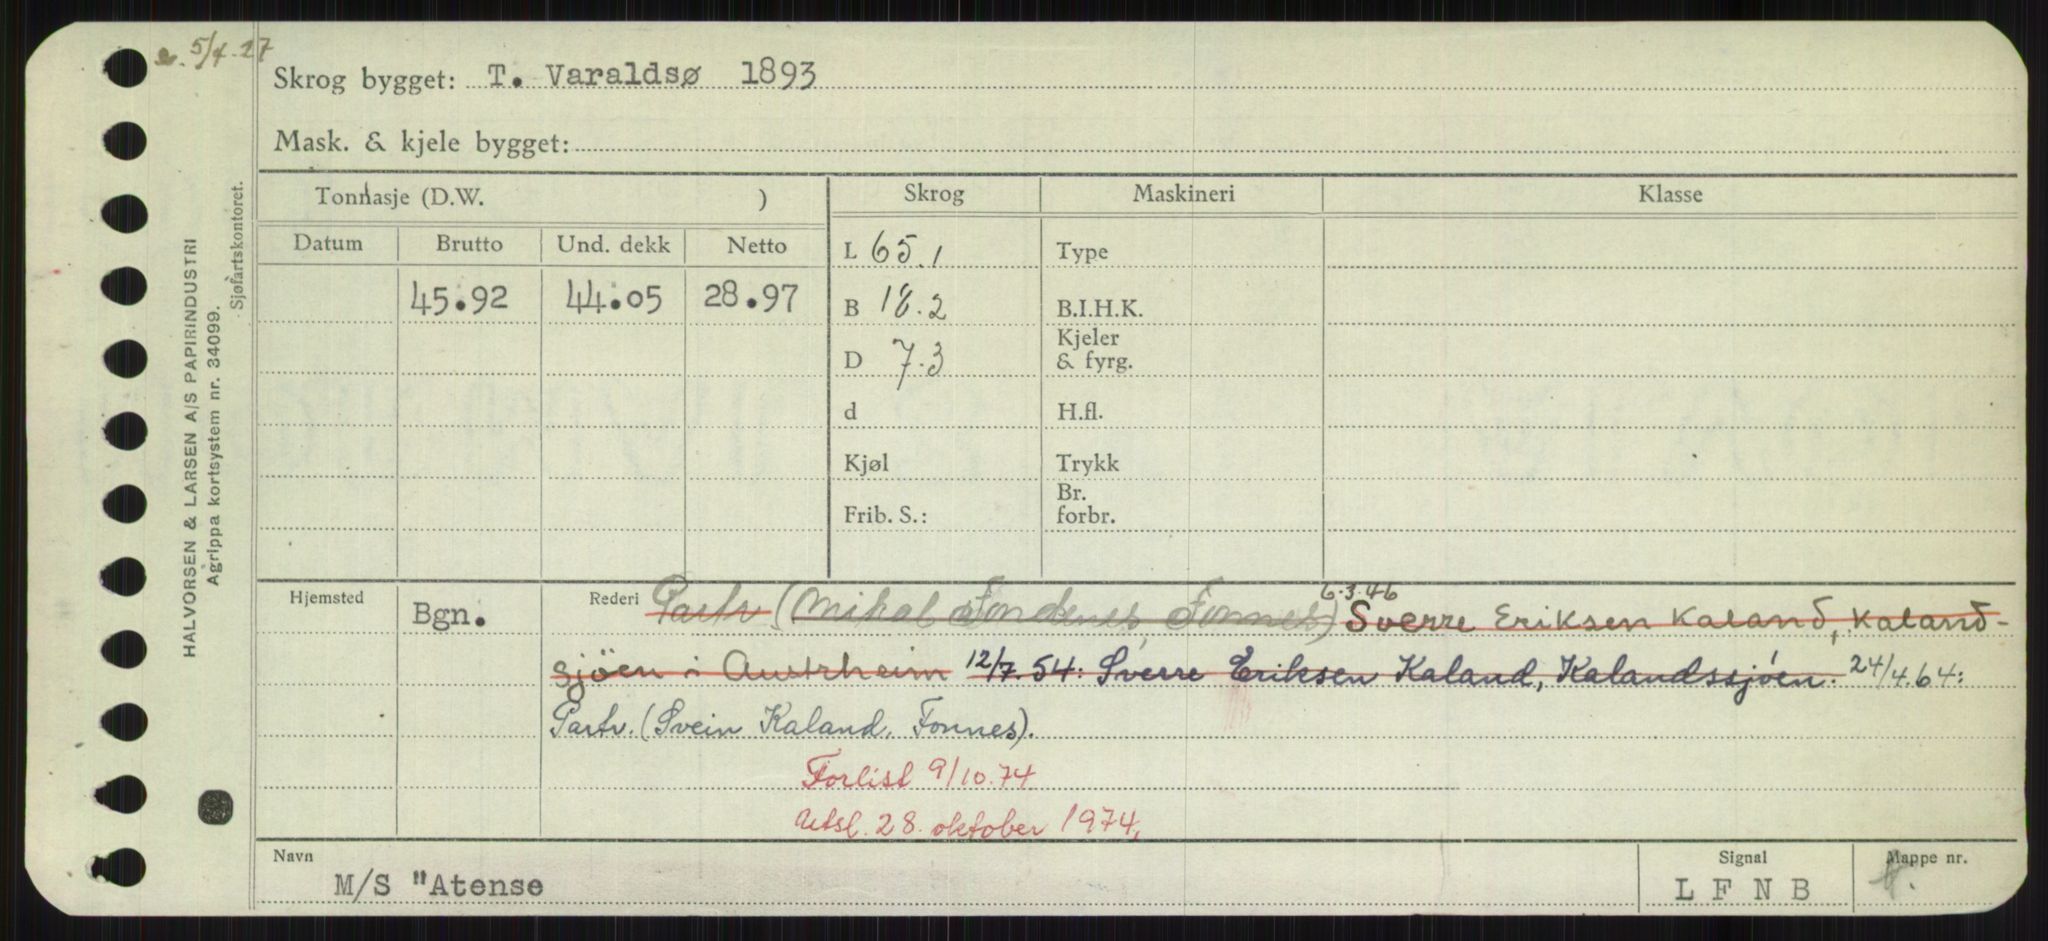 5/4.27
Skrog bygget: T. Varaldsø 1893
Mask. & kjele bygget:
HALVORSEN & LARSEN A/S PAPIRINDUSTRI
Agrippa kortsystem nr. 34099.
Sjøfartskontoret.
Tonnasje (D.W. )
Skrog Maskineri Klasse
Datum Brutto Und. dekk Netto
L 65.1 Type
45.92 44.05 28.97
B 18.2 B.I.H.K.
D 7.3 Kjeler & fyrg.
d H.fl.
Kjøl Trykk
Frib. S.: Br. forbr.
Hjemsted Bgn.
6.3.46
Rederi Partr. (Mikal Fondenes, Fonnes) Sverre Eriksen Kaland, Kaland-
sjöen i Austrheim 12/7.54: Sverre Eriksen Kaland, Kalandssjöen. 24/4.64:
Partr. (Svein Kaland, Fonnes).
Forlist 9/10.74
28. oktober 1974.
Navn Signal Mappe nr.
M/S "Atense L F N B